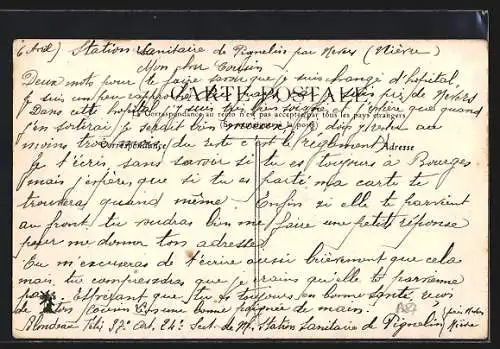 Station Sanitaire de Pignelin par Nevers (Nièvre)
Mon cher Cousin
Deux mots pour te faire savoir que je suis changé d'hopital,
CARTE POSTALE
je suis un peu rapproché suis près de Nevers
La Correspondance au recto n'est pas acceptée par tous les pays étrangers
Dans cette hopital j'y suis très bien soigné et j'espère que quand
j'en sortirai je serait bien je dois y rester au
moins trois du reste c'est le règlement
Correspondance
Adresse
Je t'écris sans savoir si tu es toujours à Bourges
mais j'espère que si tu es parti ma carte te
trouvera quand même. Enfin si elle te parvient
au front tu voudras bien me faire une petite réponse
pour me donner ton adresse.
Tu m'excuseras de t'écrire aussi brièvement que cela
mais tu comprendras que je crains qu'elle te parvienne
pas. Espérant que tu es toujours en bonne santé, reçois
de ton Cousin une bonne poignée de main.
Blondeau 32e Art. 24e Station sanitaire de Pignelin près Nevers
Nièvre